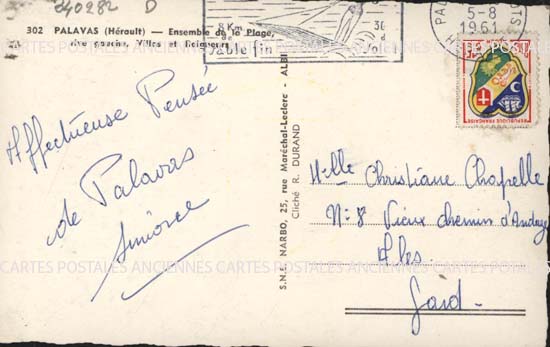 040282 D
302 PALAVAS (Hérault) — Ensemble de la Plage,
rive gauche, Villas et Baigneurs
8 Km
de
sable fin
PALAVAS
5-8
1961
REPUBLIQUE FRANÇAISE
Affectueuse Pensée
de Palavas
S.N.E. NARBO, 25, rue Maréchal-Leclerc - ALBI
Cliché R. DURAND
Mlle Christiane Chapelle
N=8 Vieux chemin d'
Ales
Gard-
CARTES POSTALES ANCIENNES CARTES POSTALES ANCIENNES CARTES POSTALES ANCIENNES